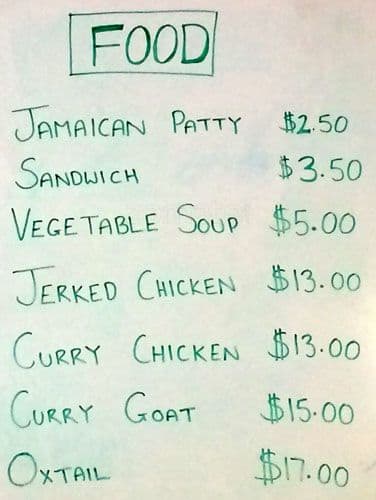 FOOD
JAMAICAN PATTY $2.50
SANDWICH $3.50
VEGETABLE SOUP $5.00
JERKED CHICKEN $13.00
CURRY CHICKEN $13.00
CURRY GOAT $15.00
OXTAIL $17.00